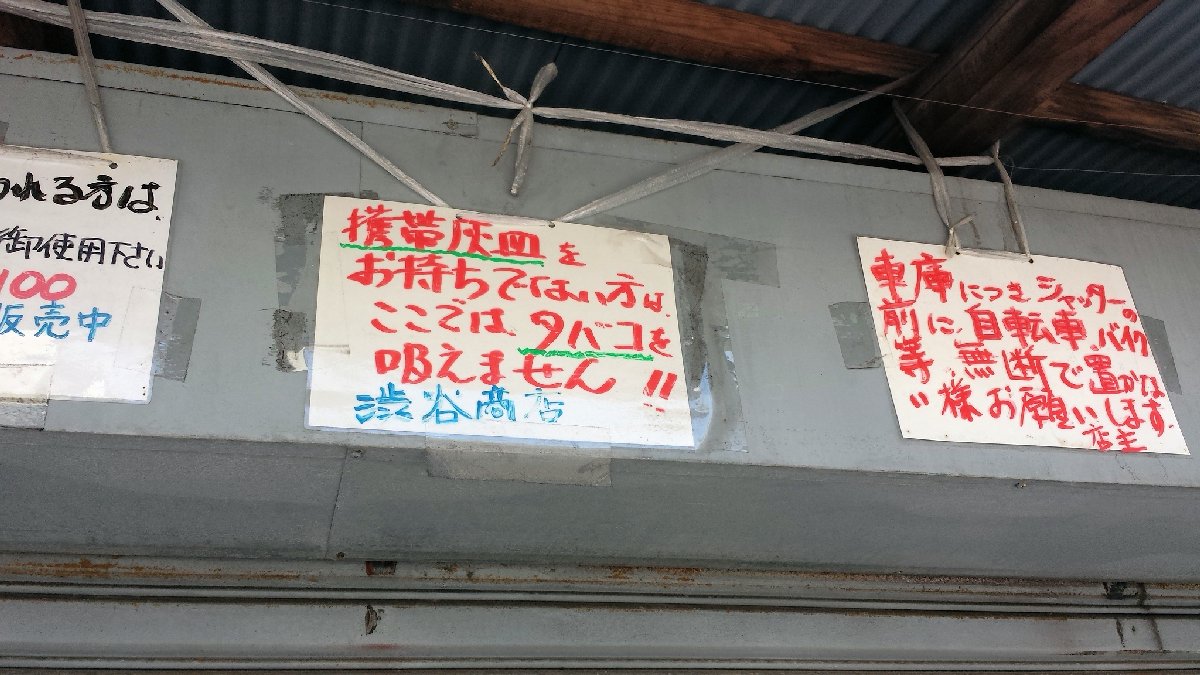 われる方は、
御使用下さい
100
販売中
携帯灰皿を
お持ちでない方は、
ここではタバコを
吸えません!!
渋谷商店
車庫につきシャッターの
前に自転車、バイク
等、無断で置かない
様お願いします。
店主